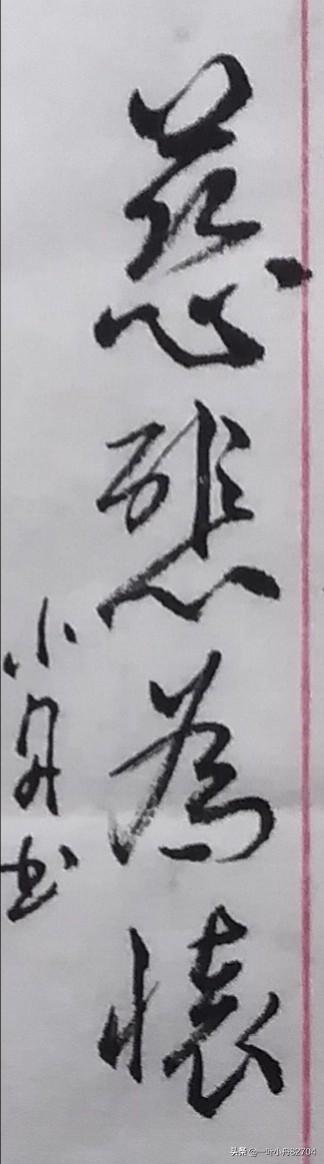 慈悲為懷
小舟书
头条 @一叶小舟82704